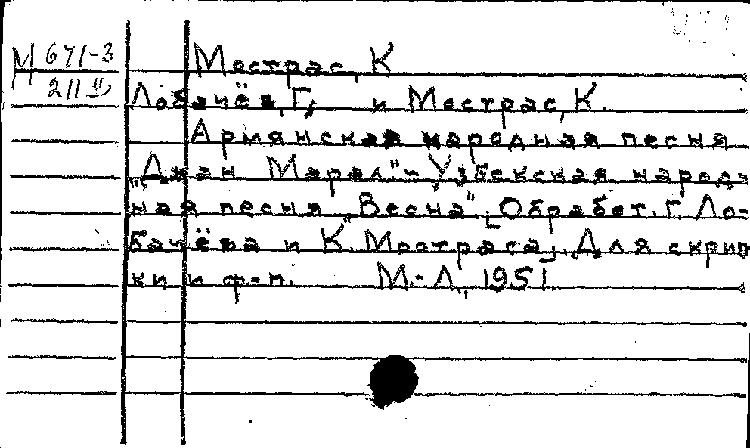 М 671-3
211
Мострас, К
Лобачёв, Г, и Мострас, К.
Армянская народная песня
„Джан Марал" - Узбекская народ-
ная песня „Весна". Обработ. Г. Ло-
бачёва и К. Мостраса. Для скрип
ки и ф-п. М.-Л., 1951